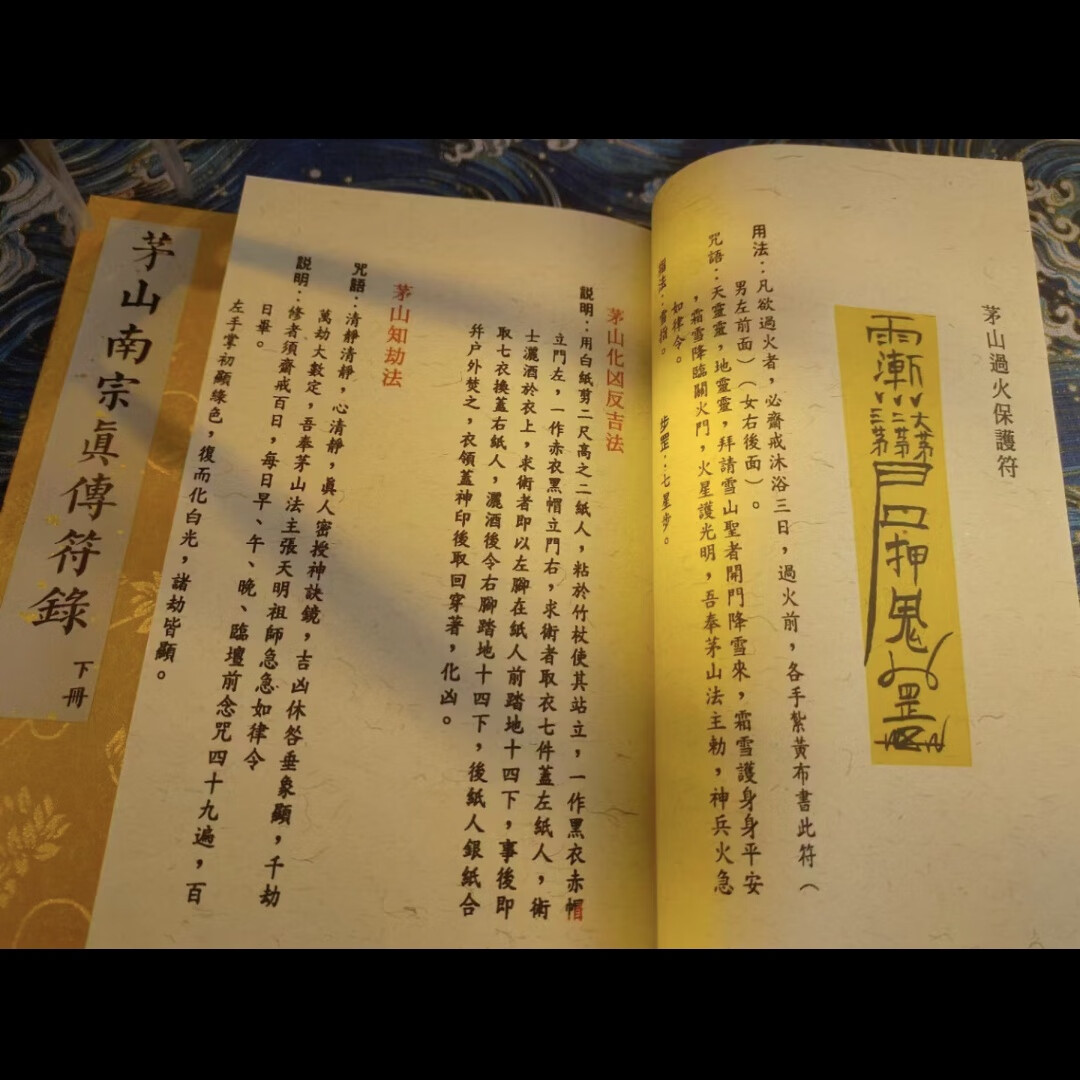 茅山過火保護符
雨漸
大茅
二茅
三茅
押鬼
罡
用法：凡欲過火者，必齋戒沐浴三日，過火前，各手紮黃布書此符（
男左前面）（女右後面）。
咒語：天靈靈，地靈靈，拜請雪山聖者開門降雪來，霜雪護身身平安
，霜雪降臨關火門，火星護光明，吾奉茅山法主勅，神兵火急
如律令。
步罡：七星步。
茅山化凶反吉法
說明：用白紙剪二尺高之二紙人，粘於竹杖使其站立，一作黑衣赤帽
立門左，一作赤衣黑帽立門右，求術者取衣七件蓋左紙人，術
士灑酒於衣上，求術者即以左腳在紙人前踏地十四下，事後即
取七衣換蓋右紙人，灑酒後令右腳踏地十四下，後紙人銀紙合
幷户外焚之，衣領蓋神印後取回穿著，化凶。
茅山知劫法
咒語：清靜清靜，心清靜，眞人密授神訣鏡，吉凶休咎垂象顯，千劫
萬劫大數定，吾奉茅山法主張天明祖師急急如律令
說明：修者須齋戒百日，每日早、午、晚、臨壇前念咒四十九遍，百
日畢。
左手掌初顯綠色，復而化白光，諸劫皆顯。
茅山南宗眞傳符錄
下冊